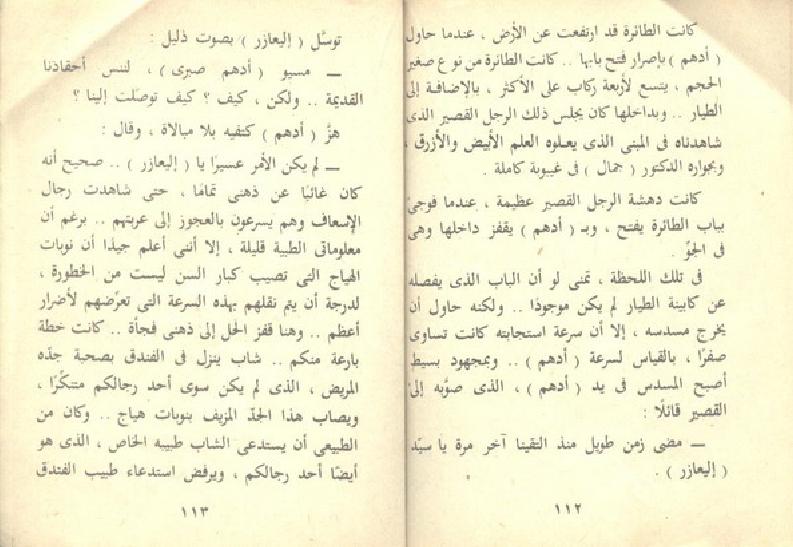 كانت الطائرة قد ارتفعت عن الأرض ، عندما حاول
( أدهم ) بإصرار فتح بابها .. كانت الطائرة من نوع صغير
الحجم ، يتسع لأربعة ركاب على الأكثر ، بالإضافة إلى
الطيار .. وبداخلها كان يجلس ذلك الرجل القصير الذى
شاهدناه فى المبنى الذى يعلوه العلم الأبيض والأزرق ،
وبجواره الدكتور ( جمال ) فى غيبوبة كاملة .
كانت دهشة الرجل القصير عظيمة ، عندما فوجئ
بباب الطائرة يفتح ، وبـ ( أدهم ) يقفز داخلها وهى
فى الجوّ .
فى تلك اللحظة ، تمنى لو أن الباب الذى يفصله
عن كابينة الطيار لم يكن موجودًا .. ولكنه حاول أن
يخرج مسدسه ، إلا أن سرعة استجابته كانت تساوى
صفرًا ، بالقياس لسرعة ( أدهم ) .. وبمجهود بسيط
أصبح المسدس فى يد ( أدهم ) ، الذى صوّبه إلى
القصير قائلًا :
ــ مضى زمن طويل منذ التقينا آخر مرة يا سيّد
( إليعازر ) .
١١٢
توسَّل ( إليعازر ) بصوت ذليل :
ــ مسيو ( أدهم صبرى ) ، لننس أحقادنا
القديمة .. ولكن ، كيف ؟ كيف توصلت إلينا ؟
هزَّ ( أدهم ) كتفيه بلا مبالاة ، وقال :
ــ لم يكن الأمر عسيرًا يا ( إليعازر ) .. صحيح أنه
كان غائبًا عن ذهنى تمامًا ، حتى شاهدت رجال
الإسعاف وهم يسرعون بالعجوز إلى عربتهم .. برغم أن
معلوماتى الطبية قليلة ، إلا أننى أعلم جيدًا أن نوبات
الهياج التى تصيب كبار السن ليست من الخطورة ،
لدرجة أن يتم نقلهم بهذه السرعة التى تعرّضهم لأضرار
أعظم .. وهنا قفز الحل إلى ذهنى فجأة .. كانت خطة
بارعة منكم .. شاب ينزل فى الفندق بصحبة جدّه
المريض ، الذى لم يكن سوى أحد رجالكم متنكرًا ،
ويصاب هذا الجدّ المزيف بنوبات هياج .. وكان من
الطبيعى أن يستدعى الشاب طبيبه الخاص ، الذى هو
أيضًا أحد رجالكم ، ويرفض استدعاء طبيب الفندق
١١٣